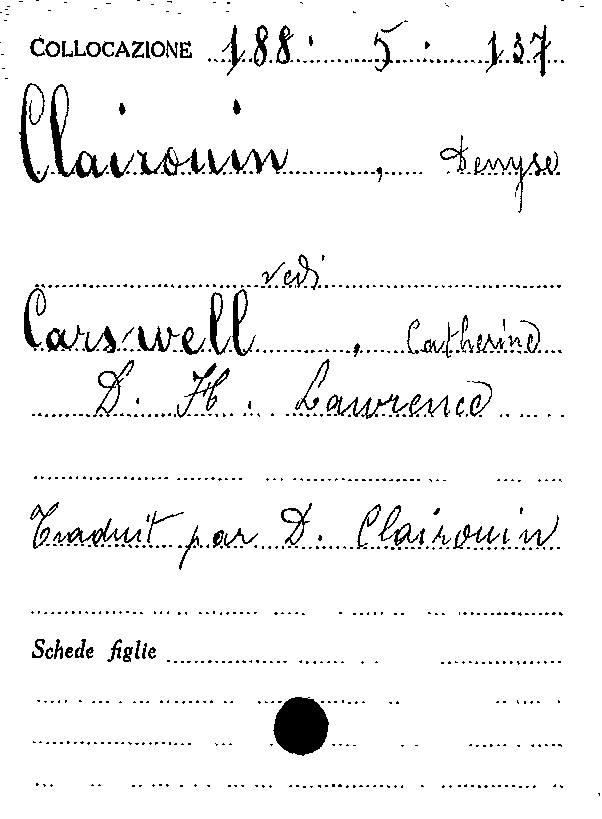 COLLOCAZIONE 188. 5. 137
Clairouin, Denyse
vedi
Carswell, Catherine
D. H. Lawrence
Traduit par D. Clairouin
Schede figlie